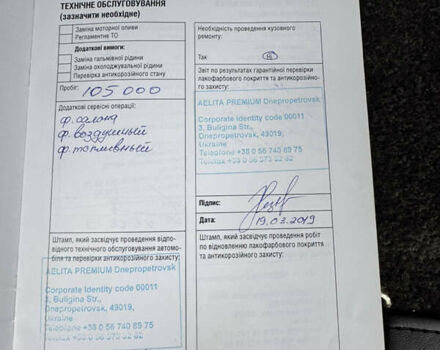 ТЕХНІЧНЕ ОБСЛУГОВУВАННЯ
(зазначити необхідне)
Заміна моторної оливи
Регламентне ТО
Додаткові вимоги:
Заміна гальмівної рідини
Заміна охолоджувальної рідини
Перевірка антикорозійного стану
Пробіг: 105 000
Додаткові сервісні операції:
ф. салона
ф. воздушный
ф. топливный
Штамп, який засвідчує проведення відпо-
відного технічного обслуговування автомо-
біля та перевірки антикорозійного захисту:
AELITA PREMIUM Dnepropetrovsk
Corporate Identity code 00011
3, Buligina Str.,
Dnepropetrovsk, 49019,
Ukraine
Telephone +38 0 56 740 89 75
Telefax +38 0 56 373 92 82
Необхідність проведення кузовного
ремонту:
Так Ні
Звіт по результатах гарантійної перевірки
лакофарбового покриття та антикорозійно-
го захисту:
AELITA PREMIUM Dnepropetrovsk
Corporate Identity code 00011
3, Buligina Str.,
Dnepropetrovsk, 49019,
Ukraine
Telephone +38 0 56 740 89 75
Telefax +38 0 56 373 92 82
Підпис:
Дата: 19.03.2019
Штамп, який засвідчує проведення робіт
по відновленню лакофарбового покриття
та антикорозійного захисту: